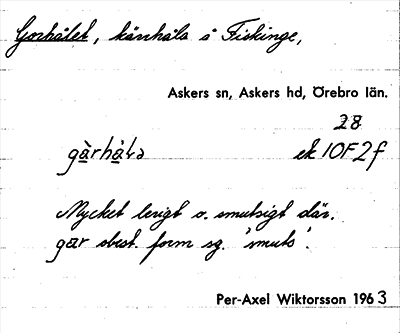 Gorhålet, kärrhåla å Fiskinge,
Askers sn, Askers hd, Örebro län.
28
gàrhå̀la ek 10F2f
Mycket lerigt o. smutsigt där.
gar obest. form sg. 'smuts'.
Per-Axel Wiktorsson 1963